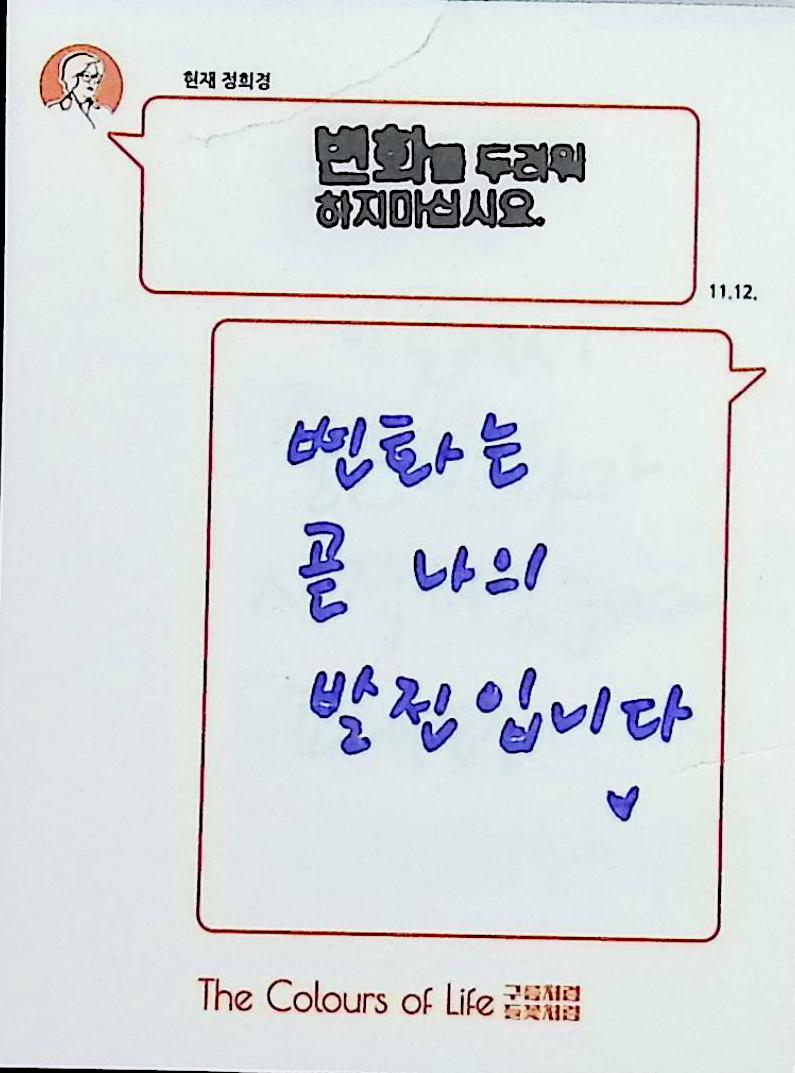 현재 정희경
변화를 두려워
하지마십시요.
11.12.
변화는
곧 나의
발전입니다
The Colours of Life 구름처럼
들꽃처럼